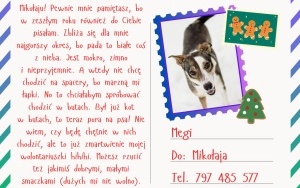 Mikołaju! Pewnie mnie pamiętasz, bo
w zeszłym roku również do Ciebie
pisałam. Zbliża się dla mnie
najgorszy okres, bo pada to białe coś
z nieba. Jest mokro, zimno
i nieprzyjemnie. A wtedy nie chcę
chodzić na spacery, bo marzną mi
łapki. No to chciałabym spróbować
chodzić w butach. Był już kot
w butach, to teraz pora na psa! Nie
wiem, czy będę chętnie w nich
chodzić, ale to już zmartwienie mojej
wolontariuszki hihihi. Możesz rzucić
też jakimiś dobrymi, małymi
smaczkami (dużych mi nie wolno).
Megi
Do: Mikołaja
Tel. 797 485 577